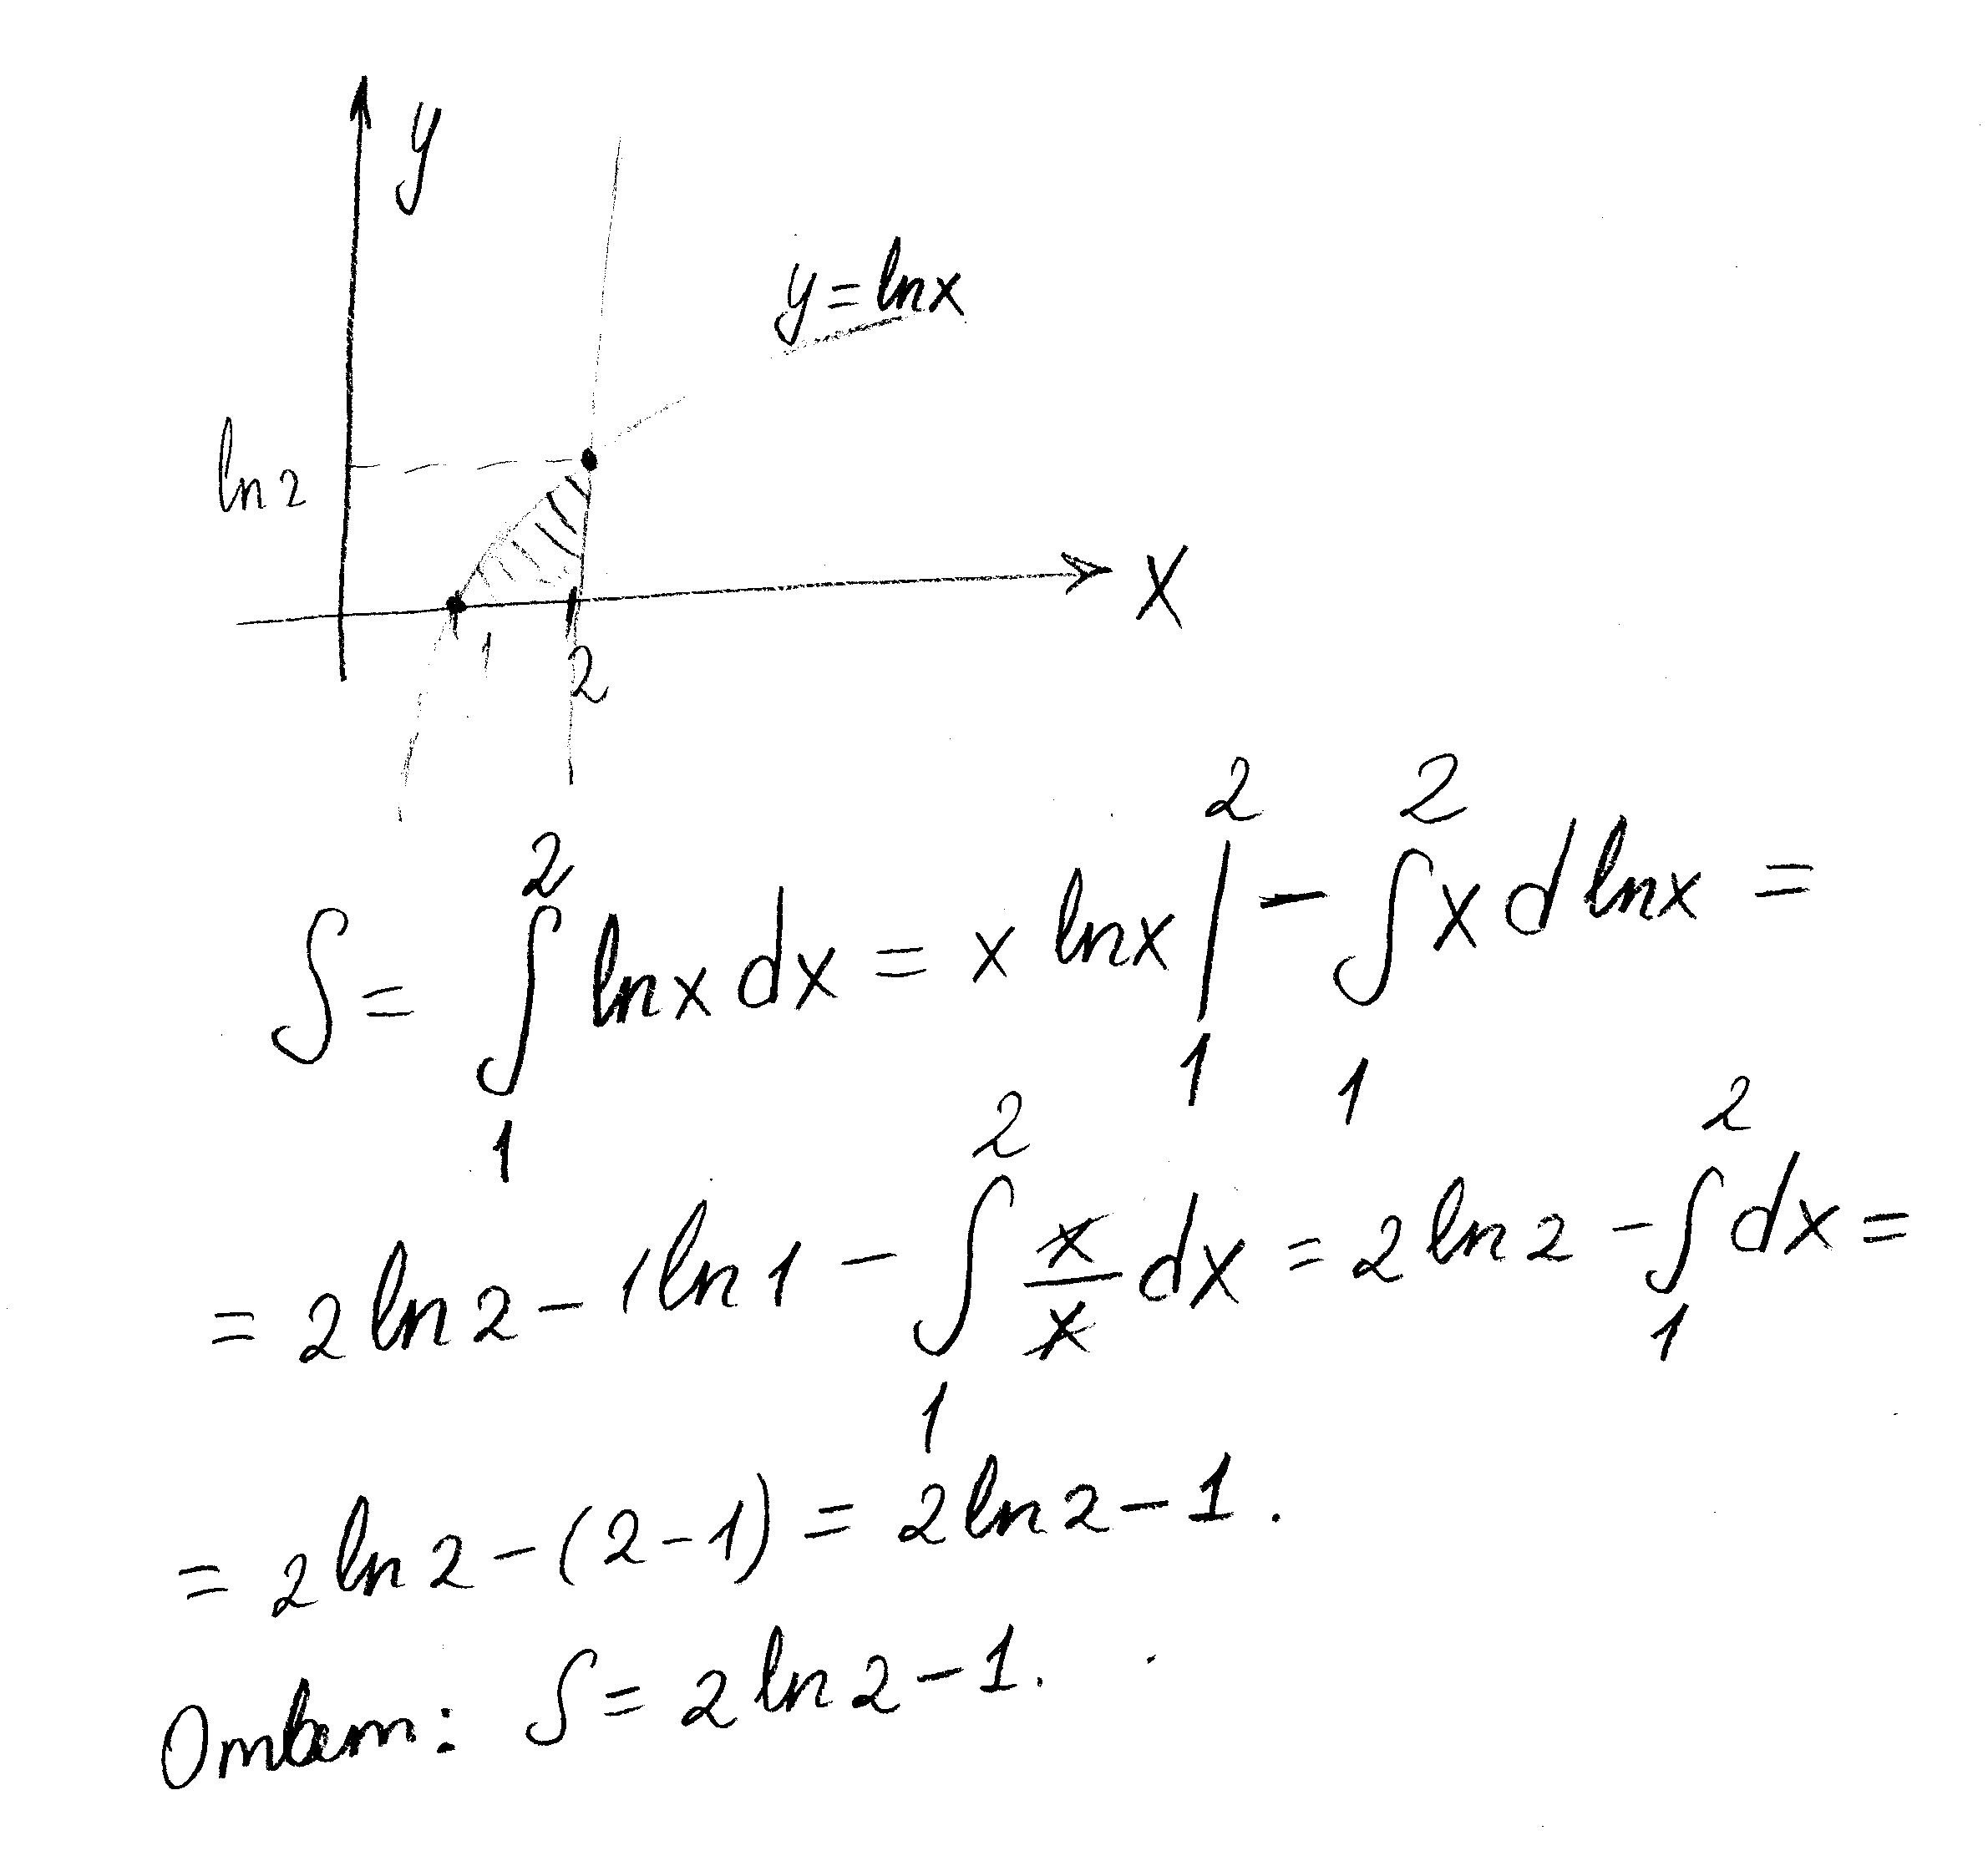 y
y = ln x
ln 2
x
1
2
S = ∫₁² ln x dx = x ln x |₁² − ∫₁² x d ln x =
= 2 ln 2 − 1 ln 1 − ∫₁² x/x dx = 2 ln 2 − ∫₁² dx =
= 2 ln 2 − (2 − 1) = 2 ln 2 − 1.
Ответ: S = 2 ln 2 − 1.